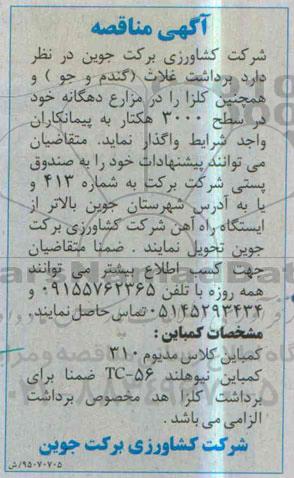 آگهی مناقصه
شرکت کشاورزی برکت جوین در نظر
دارد برداشت غلات (گندم و جو ) و
همچنین کلزا را در مزارع دهگانه خود
در سطح ۳۰۰۰ هکتار به پیمانکاران
واجد شرایط واگذار نماید. متقاضیان
می توانند پیشنهادات خود را به صندوق
پستی شرکت برکت به شماره ۴۱۳ و
یا به آدرس شهرستان جوین بالاتر از
ایستگاه راه آهن شرکت کشاورزی برکت
جوین تحویل نمایند . ضمنا متقاضیان
جهت کسب اطلاع بیشتر می توانند
همه روزه با تلفن ۰۹۱۵۵۷۶۲۳۶۵ و
۰۵۱۴۵۲۹۳۴۳۴ تماس حاصل نمایند.
مشخصات کمباین :
کمباین کلاس مدیوم ۳۱۰
کمباین نیوهلند TC-۵۶ ضمنا برای
برداشت کلزا هد مخصوص برداشت
الزامی می باشد .
شرکت کشاورزی برکت جوین
۹۵۰۷۰۷۰۵/ش